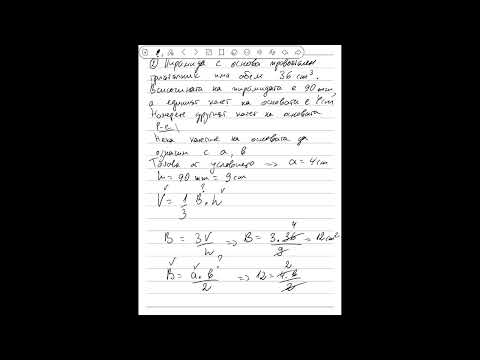 ② Пирамида с основа правоъгълен
триъгълник има обем 36 cm³.
Височината на пирамидата е 90 mm,
а единият катет на основата е 4 cm
Намерете другият катет на основата
Р-е:
Нека катетите на основата да
означим с a, b
Тогава от условието => a = 4 cm
h = 90 mm = 9 cm
V = 1/3 B . h
?
B = 3V/h => B = 3.36/9 = 12 cm²
4
?
B = a.b/2 => 12 = 4.b/2
2